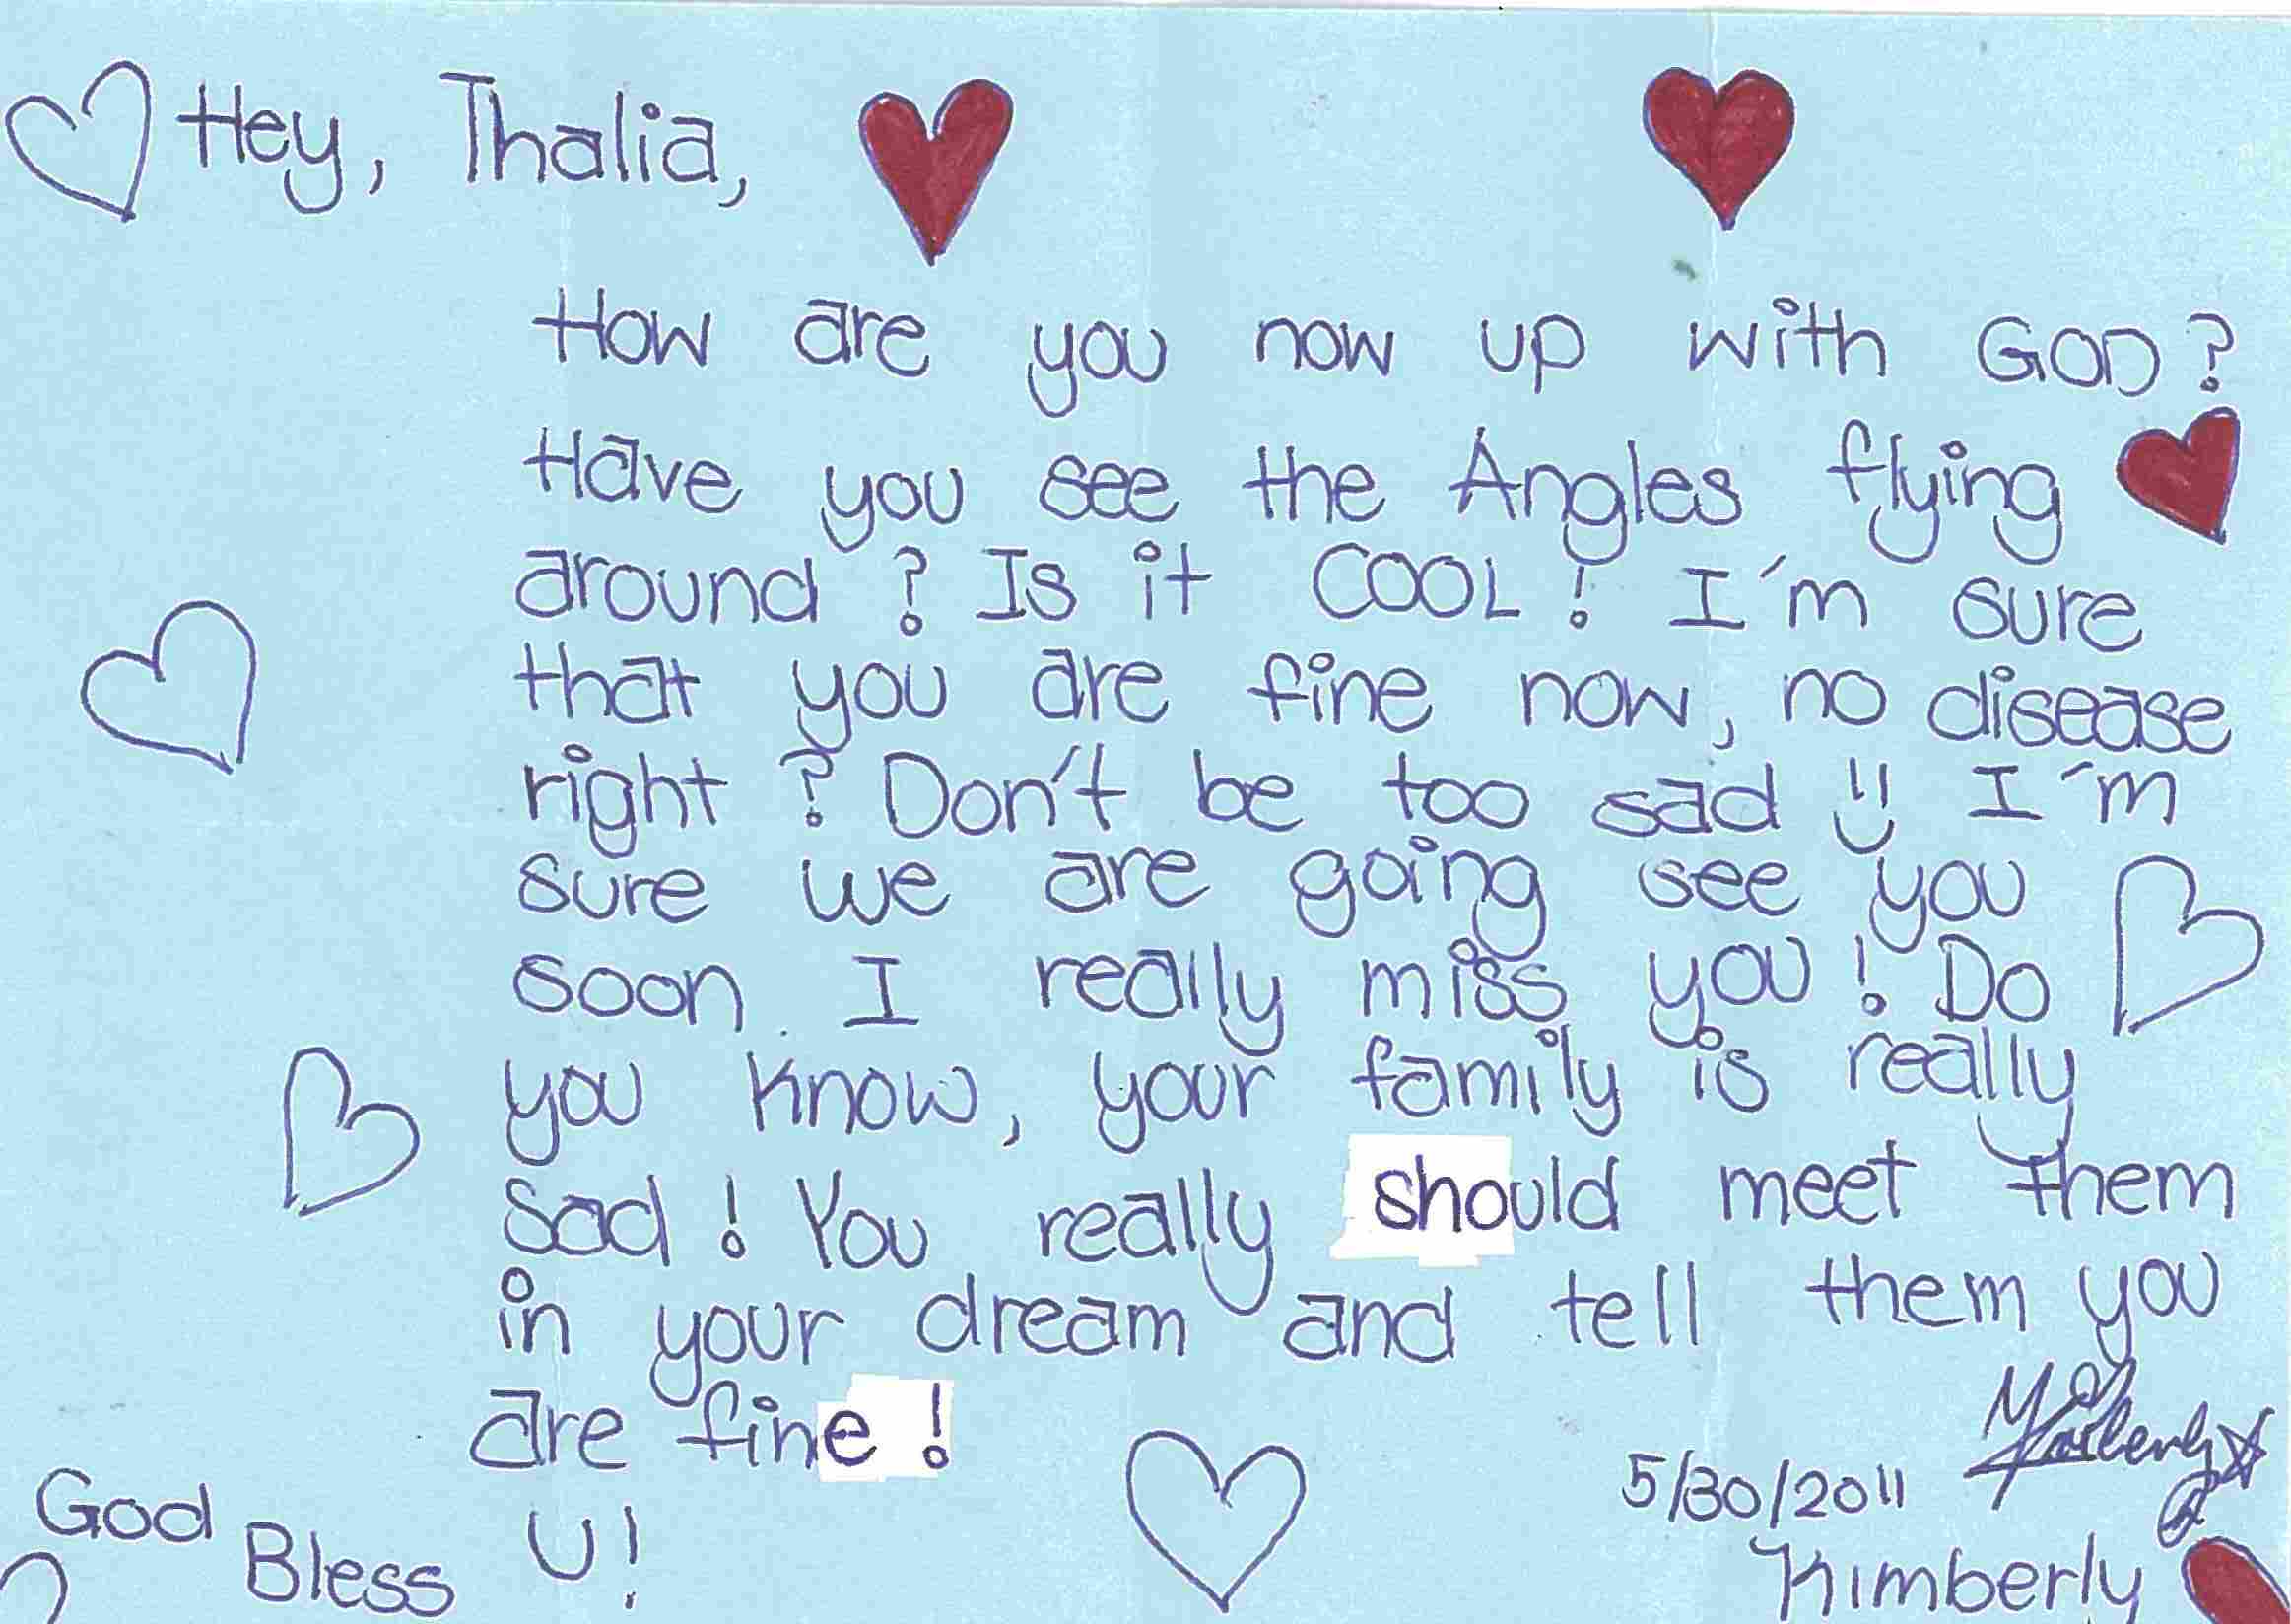 Hey, Thalia,
How are you now up with GOD?
Have you see the Angles flying
around? Is it COOL! I'm sure
that you are fine now, no disease
right? Don't be too sad !! I'm
sure we are going see you
soon. I really miss you! Do
you know, your family is really
sad! You really should meet them
in your dream and tell them you
are fine!
God Bless U!
5/30/2011
Kimberly